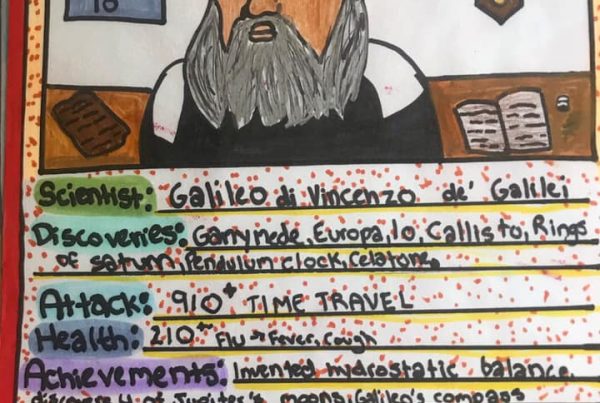 10
Scientist: Galileo di Vincenzo de' Galilei
Discoveries: Ganymede, Europa, Io, Callisto, Rings
of saturn, Pendulum clock, Celatone
Attack: 910+ TIME TRAVEL
Health: 210+ Flu → Fever, Cough
Achievements: Invented hydrostatic balance,
discovery 4 of Jupiter's moons, Galileo's compass